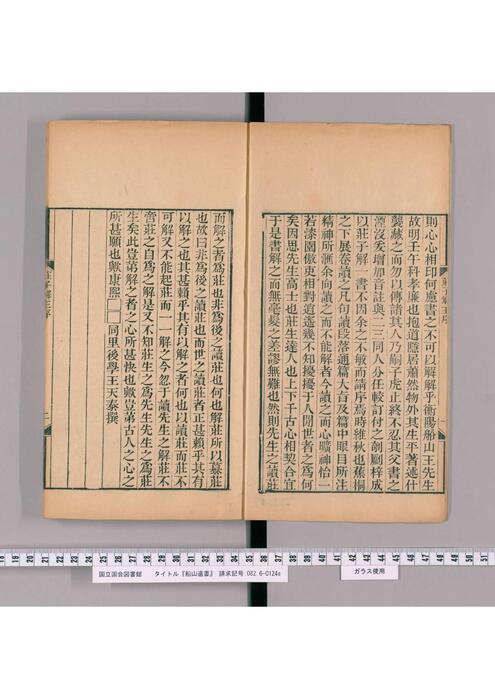 則心心相印何慮書之不可以解解乎衡陽船山王先生
故明壬午科孝廉也抱道隱居蕭然物外其生平著述什
襲藏之而勿以傳諸其人乃嗣子虎止終不忍其父書之
湮沒爰增加音註與二三同人分任較訂付之剞劂梓成
以莊子解一書不因余之不敏而請序焉時維秋也蕉桐
之下展卷讀之凡句讀段落通篇大旨及篇中眼目所注
精神所滙余向讀之而不能解者今讀之而心曠神怡一
若漆園傲吏相對逍遙幾不知擾擾于人閒世者之為何
矣因思先生高士也莊生達人也上下千古心相契合宜
于是書解之而無毫髮之差謬無難也然則先生之讀莊
而解之者為莊也非為後之讀莊也何也解莊所以慕莊
也故曰非為後之讀莊也而世之讀莊者正甚賴乎其有
以解之也其甚賴乎其有以解之者何也以讀莊而莊不
可解又不能起莊而一一解之今忽于讀先生之解莊不
啻莊之自為之解是又不知莊生之為先生先生之為莊
生矣此豈第解之者之心所甚快也歟豈第古人之心之
所甚願也歟康熙□□同里後學王天泰撰
莊子解王序
二
国立国会図書館 タイトル『船山遺書』 請求記号 082.6-0124s
ガラス使用